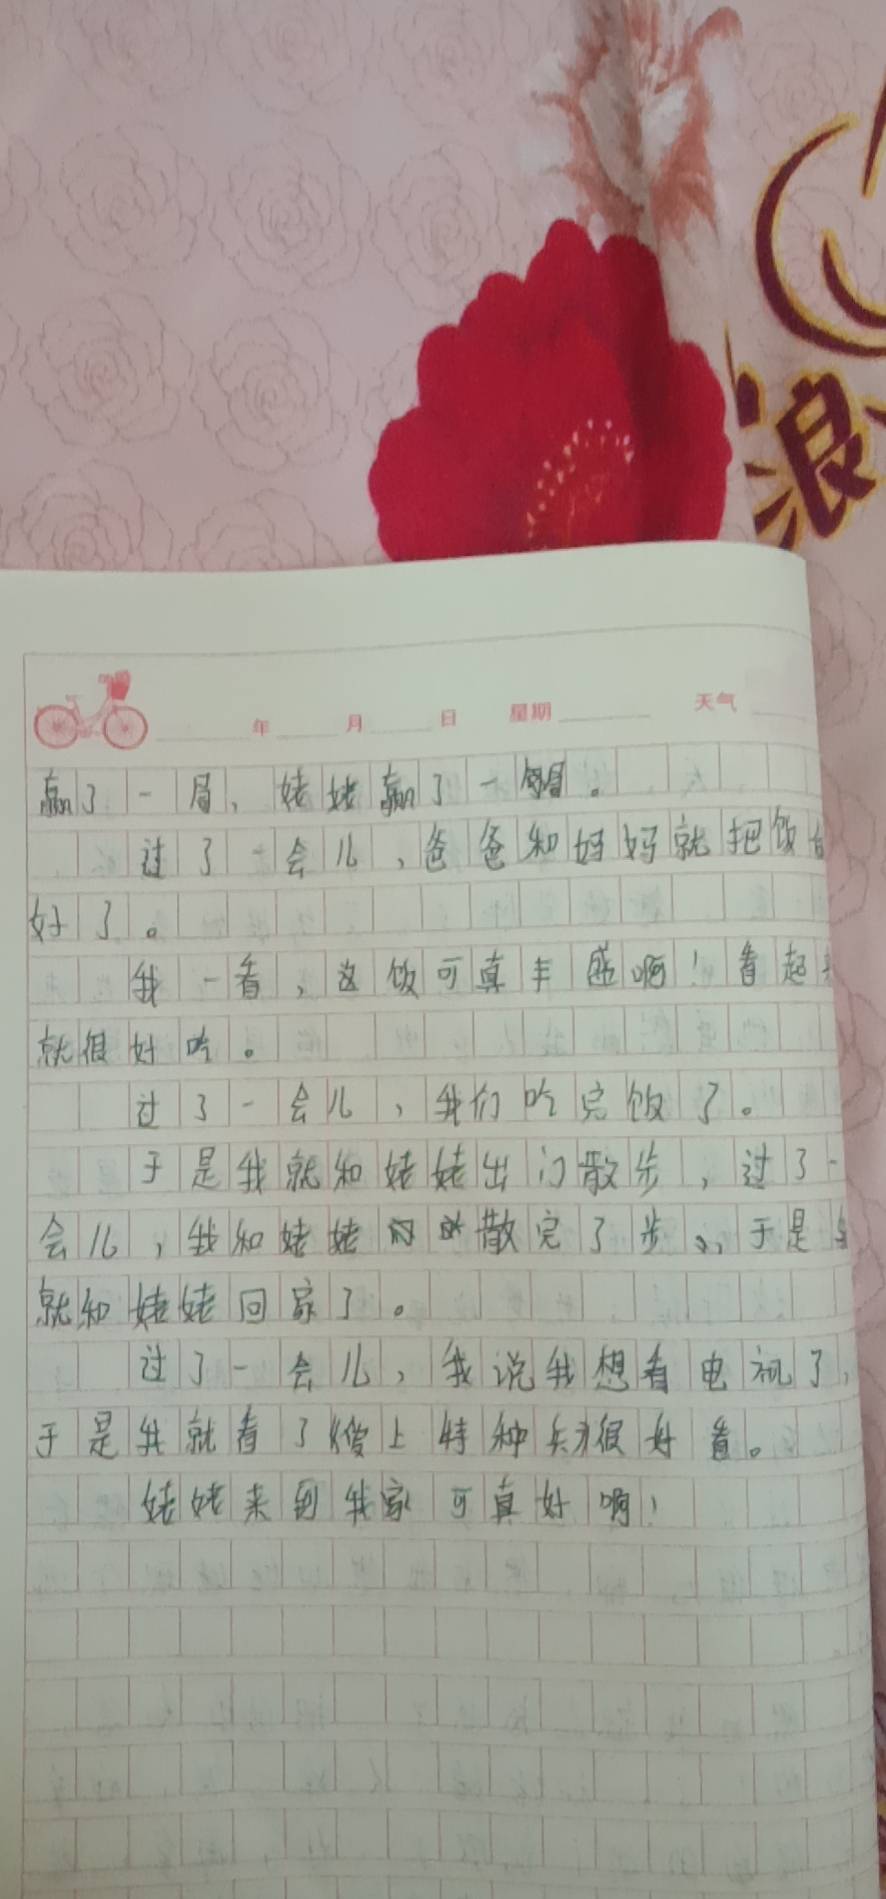 浪
年 月 日 星期 天气
赢了一局，姥姥赢了一局。
过了一会儿，爸爸和妈妈就把饭
好了。
我一看，这饭可真丰盛啊！看起
就很好吃。
过了一会儿，我们吃完饭了。
于是我就和姥姥出门散步，过了一
会儿，我和姥姥散完了步、，于是
就和姥姥回家了。
过了一会儿，我说我想看电视了，
于是我就看了《爱上特种兵》很好看。
姥姥来到我家可真好啊！